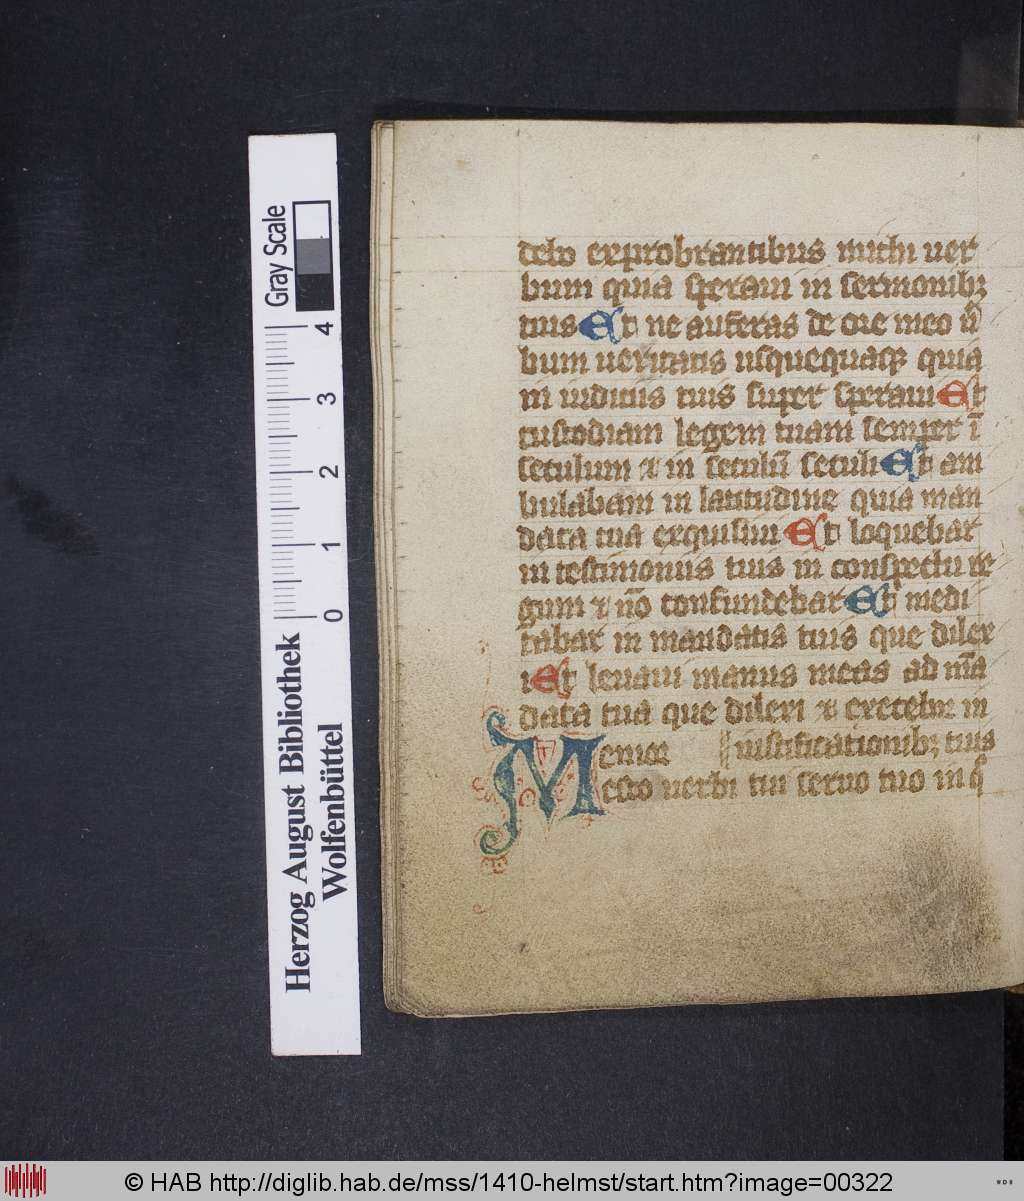 debo exprobrantibus michi uer
bum quia speraui in sermonibꝫ
tuis Et ne auferas de ore meo ū
bum ueritatis usquequaqꝫ quia
in iudiciis tuis super speraui Et
custodiam legem tuam semper ī
seculum ⁊ in seculū seculi Et am
bulabam in latitudine quia man
data tua exquisiui Et loquebar
in testimoniis tuis in conspectu re
gum ⁊ nō confundebar Et medi
tabar in mandatis tuis que dilex
i Et leuaui manus meas ad mā
data tua que dilexi ⁊ exercebar in
emor iustificationibꝫ tuis
Mesto uerbi tui seruo tuo in q̄
Gray Scale
4
3
2
1
0
Herzog August Bibliothek
Wolfenbüttel
© HAB http://diglib.hab.de/mss/1410-helmst/start.htm?image=00322